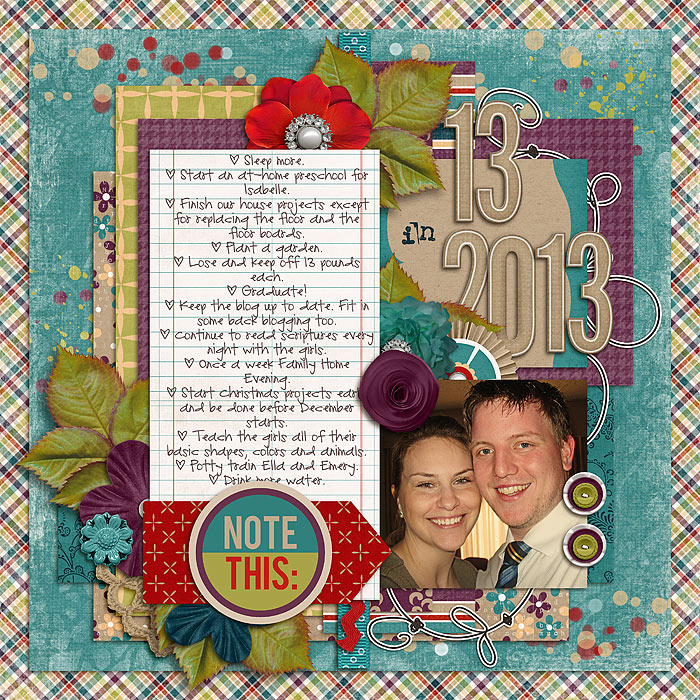 ♡ Sleep more.
♡ Start an at-home preschool for
Isabelle.
♡ Finish our house projects except
for replacing the floor and the
floor boards.
♡ Plant a garden.
♡ Lose and keep off 13 pounds
each.
♡ Graduate!
♡ Keep the blog up to date. Fit in
some back blogging too.
♡ Continue to read scriptures every
night with the girls.
♡ Once a week Family Home
Evening.
♡ Start Christmas projects early
and be done before December
starts.
♡ Teach the girls all of their
basic shapes, colors and animals.
♡ Potty train Ella and Emery.
♡ Drink more water.
13
in
2013
NOTE
THIS: